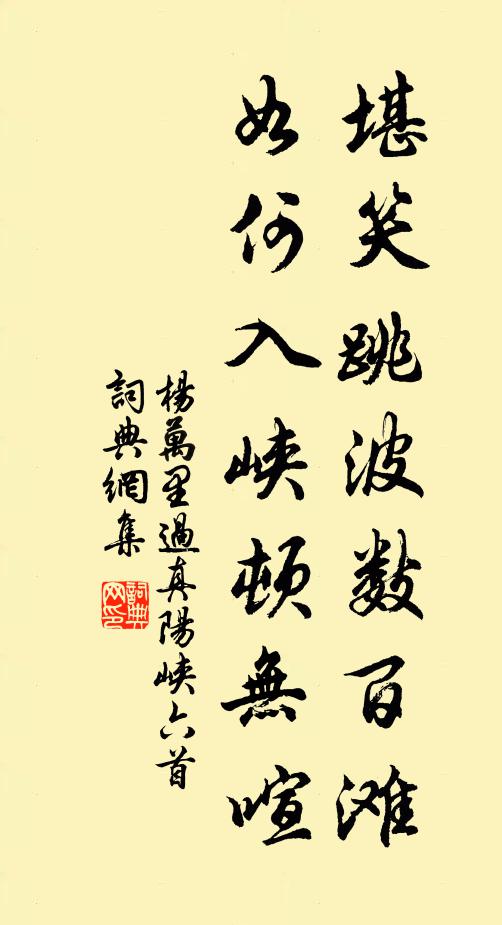 堪笑跳波数百滩
如何入峡顿無喧
楊萬里過真陽峡六首
詞典網集
詞典
网印